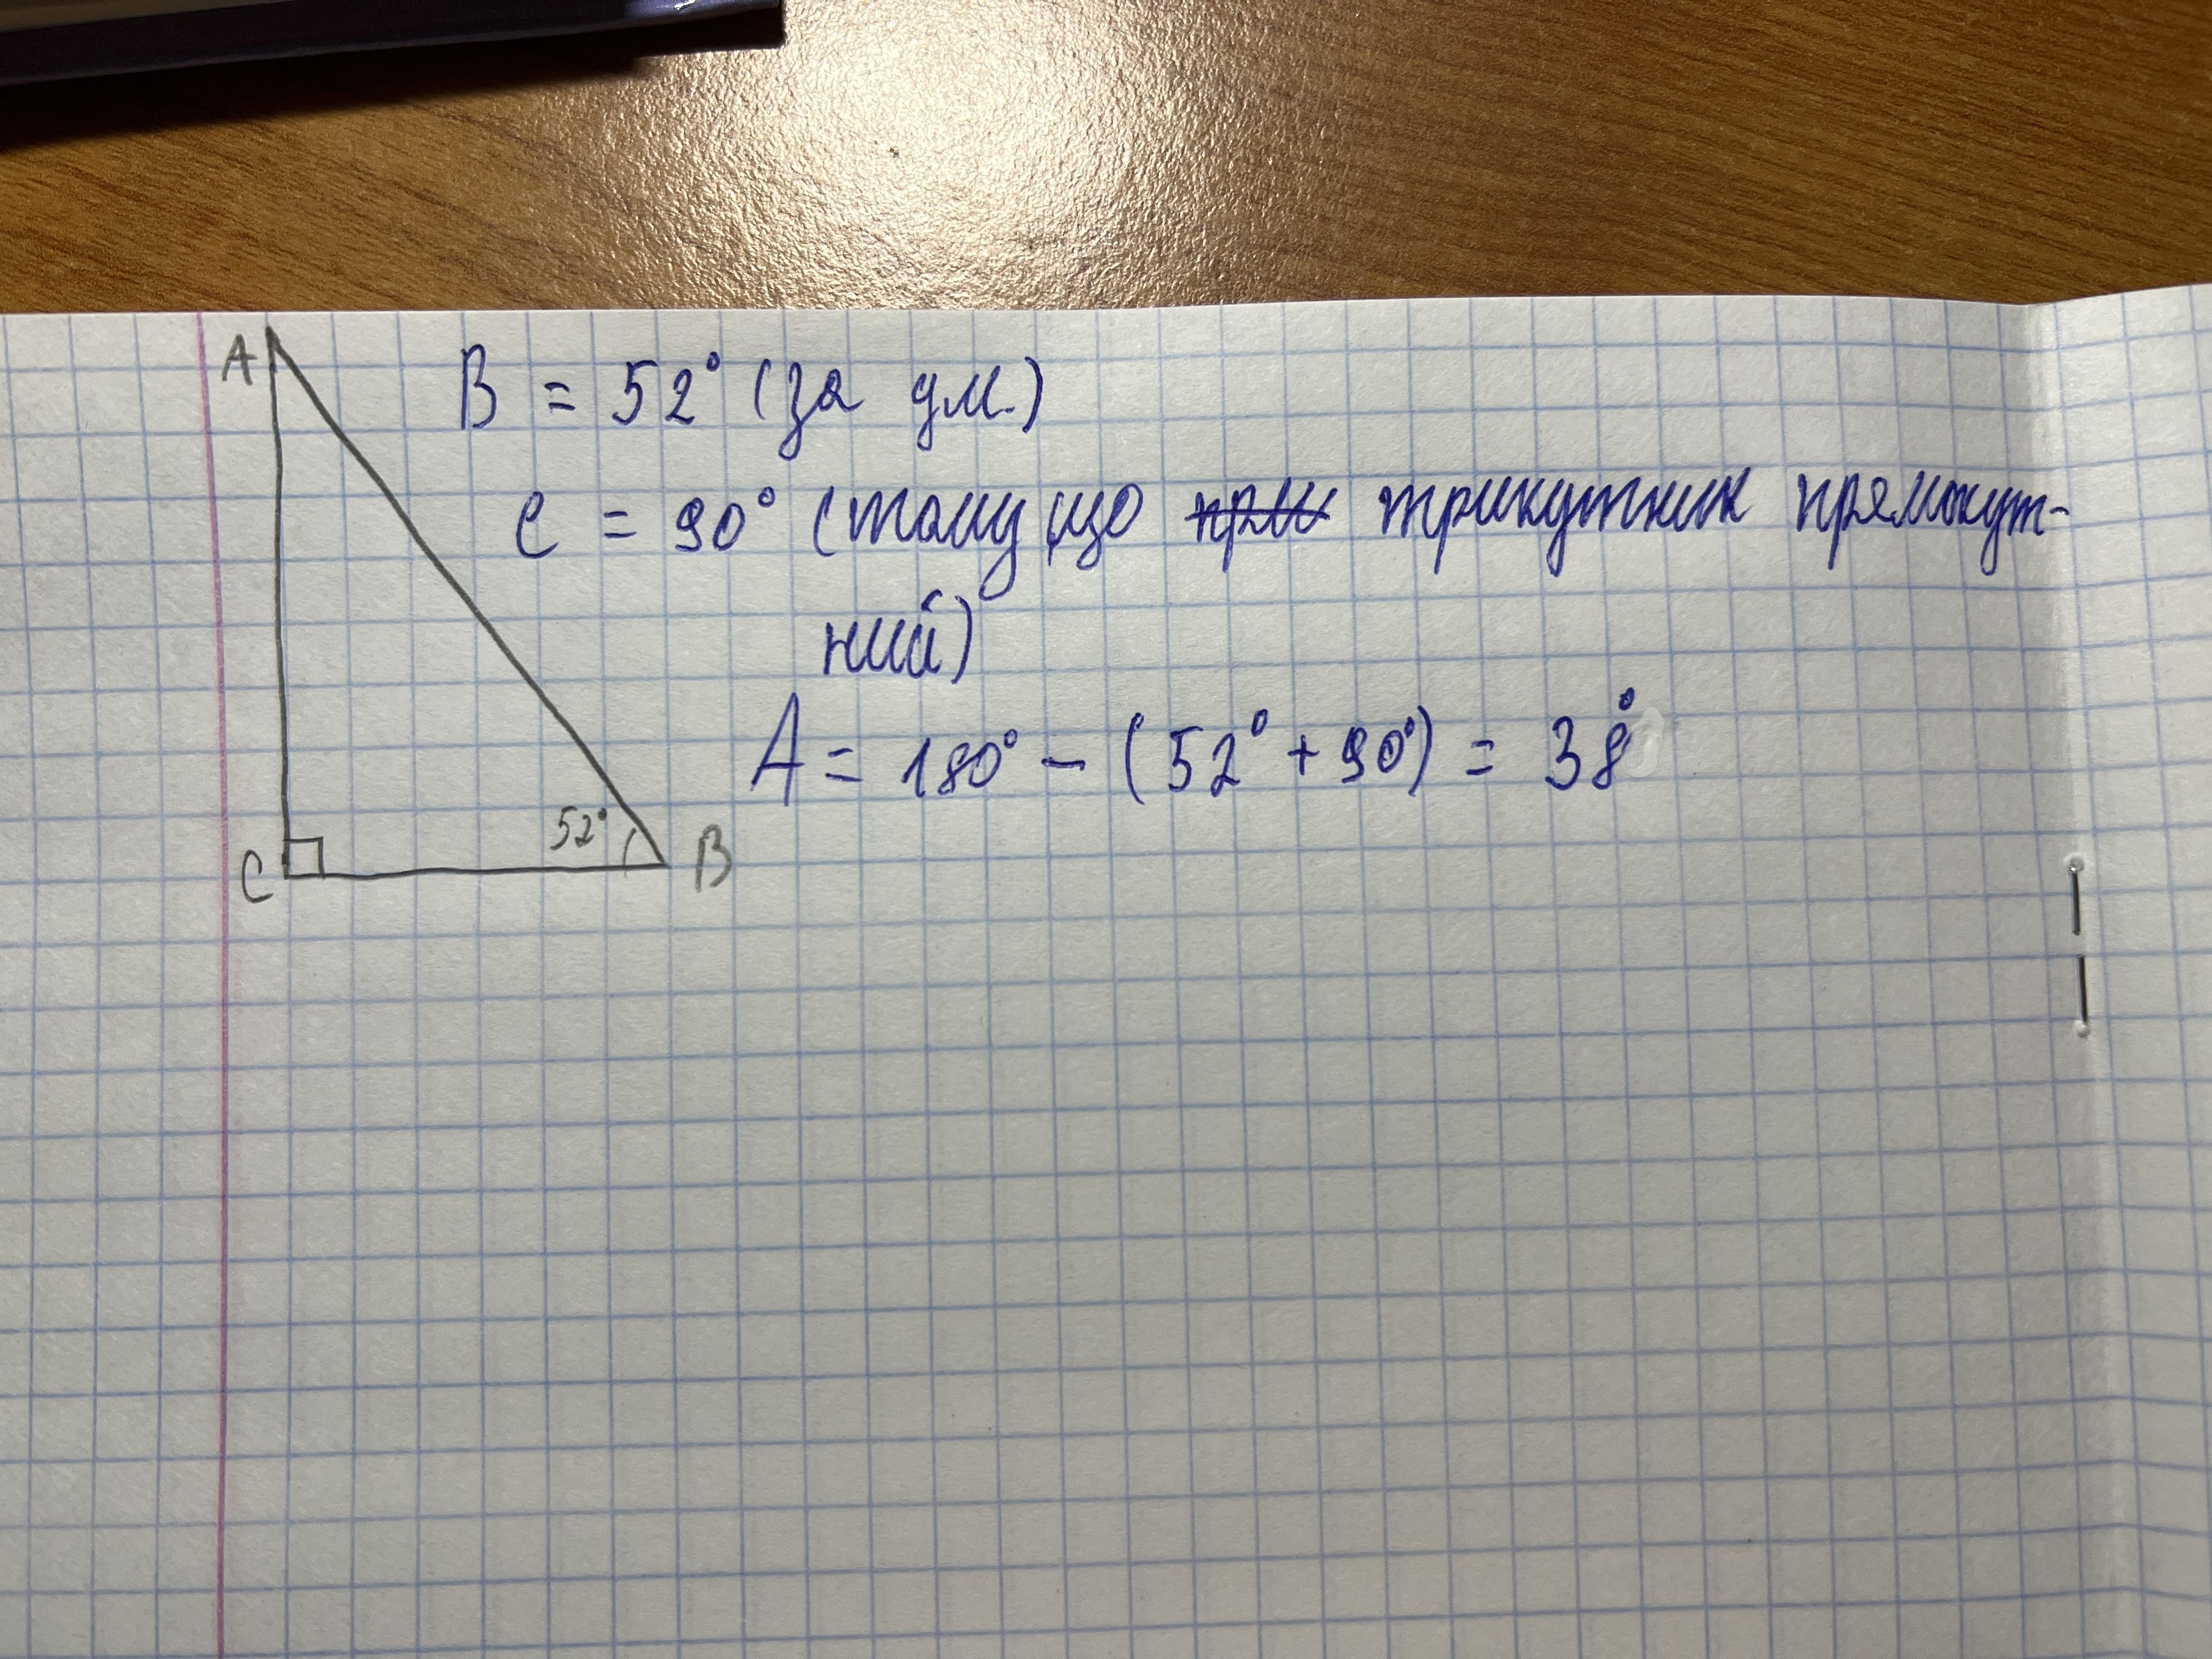 A
B = 52° (за ум.)
C = 90° (тому що при трикутник прямокут-
ний)
A = 180° - (52° + 90°) = 38°
52°
C
B